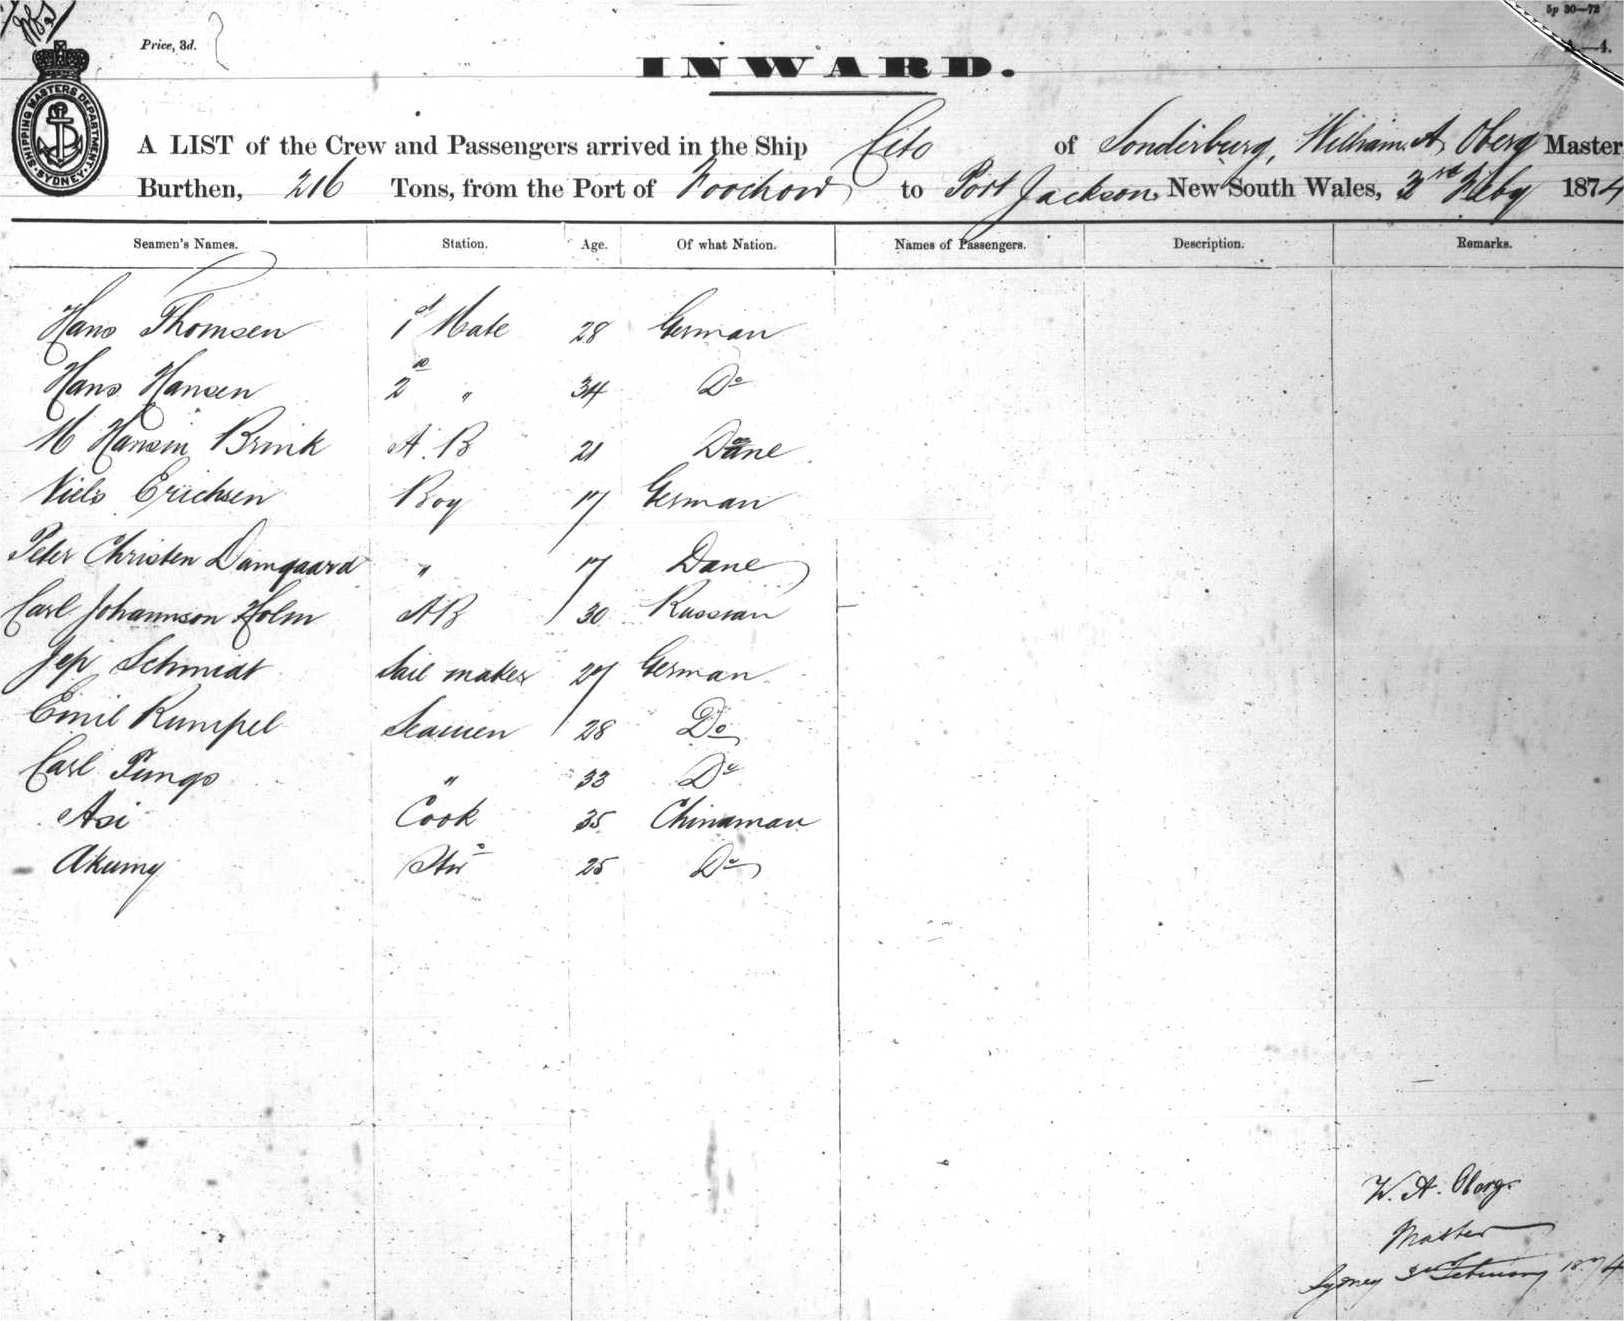 Price, 3d.
5p 30—72
INWARD.
SHIPPING MASTERS DEPARTMENT SYDNEY
A LIST of the Crew and Passengers arrived in the Ship Cito of Sonderburg, William A Oberg Master
Burthen, 216 Tons, from the Port of Foochow to Port Jackson, New South Wales, 3rd Feby 1874
Seamen's Names. Station. Age. Of what Nation. Names of Passengers. Description. Remarks.
Hans Thomsen 1st Mate 28 German
Hans Hansen 2nd " 34 Do
M Hansin Brink A.B 21 Dane
Niels Erichsen Boy 17 German
Peter Christen Damgaard " 17 Dane
Carl Johannson Holm AB 30 Russian
Jep Schmidt Sail maker 27 German
Emil Rumpel Seamen 28 Do
Carl Pungs " 33 Do
Asi Cook 35 Chinaman
Akumy Stwd 25 Do
W. A. Oberg.
Master
Sydney 3rd February 1874